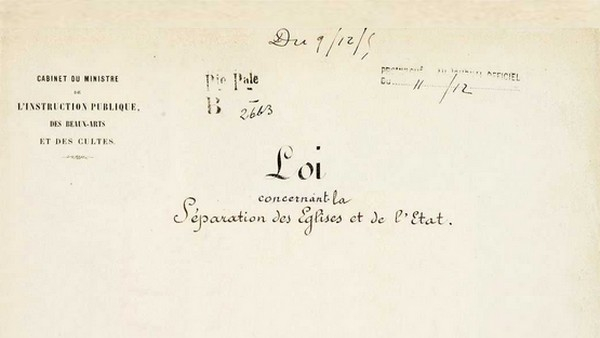 Du 9/12/5
CABINET DU MINISTRE
DE
L'INSTRUCTION PUBLIQUE,
DES BEAUX-ARTS
ET DES CULTES.
Pie Pale
B 2663
JOURNAL OFFICIEL
DU 11/12
Loi
concernant la
Séparation des Eglises et de l'Etat.